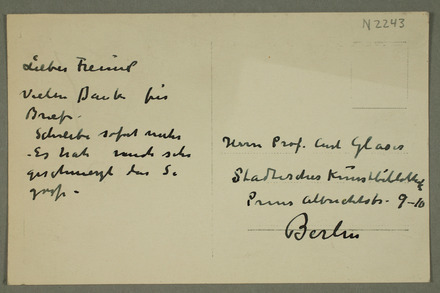 N2243
Lieber Freund
Vielen Dank für
Brief.
Schreibe sofort mehr
- Es hat mich sehr
geschmerzt das
Herrn Prof. Curt Glaser
Staatliches Kunstbibliothek
Prinz Albrechtstr. 9-10
Berlin